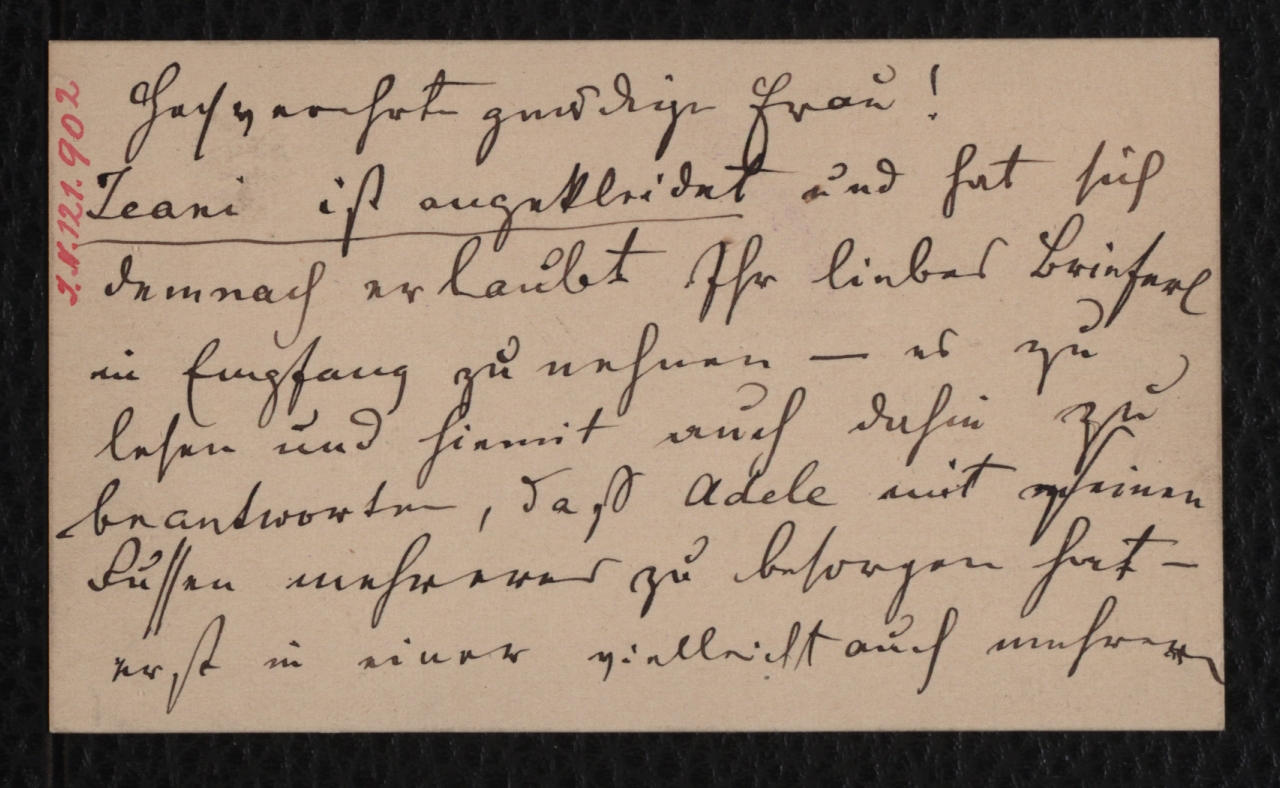 Hochverehrte gnädige Frau!
Jeani ist angekleidet und hat sich
demnach erlaubt Ihr liebes Brieferl
in Empfang zu nehmen — es zu
lesen und hiemit auch dahin zu
beantworten, daß Adele mit meinen
Füssen mehreres zu besorgen hat —
erst in einer vielleicht auch mehreren
J.N. 121.902